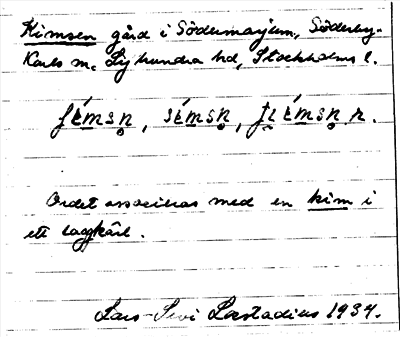 Kimsen gård i Södermarjum, Söderby-
Karls sn. Lyhundra hd, Stockholms l.
sɛ́msn̥,
Ordet associeras med en kim i
ett laggkärl.
Lars-Levi Læstadius 1934.